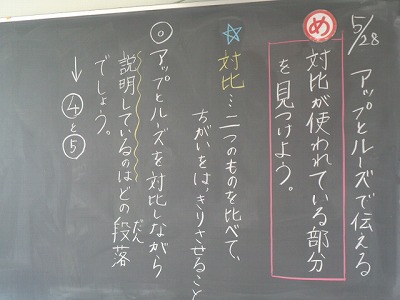 5/28 アップとルーズで伝える
め 対比が使われている部分
を見つけよう。
☆対比…二つのものを比べて、
ちがいをはっきりさせること
◎アップとルーズを対比しながら
説明しているのはどの段落
だん
でしょう。
→④と⑤